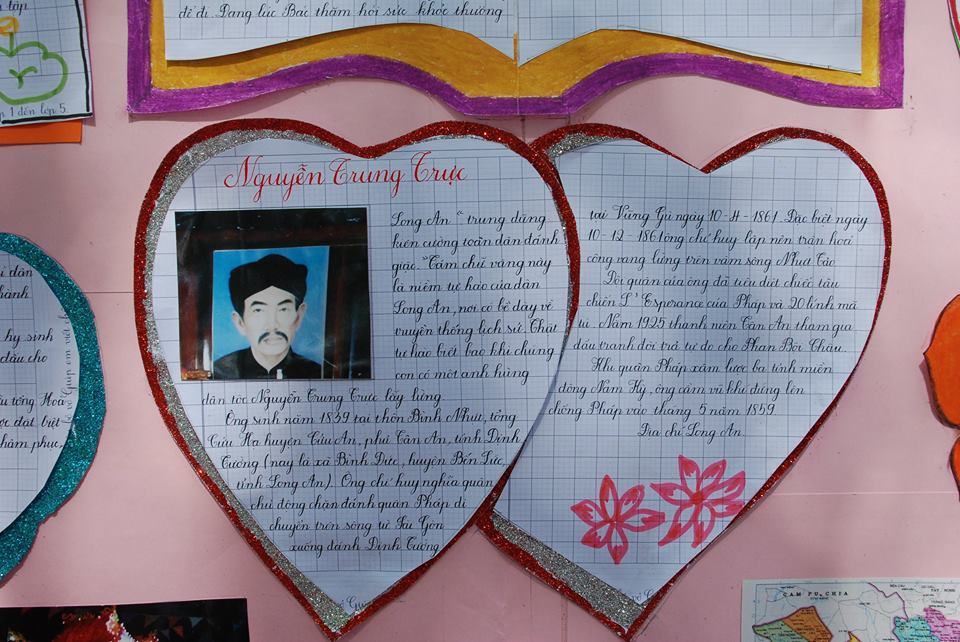 lập
p 1 đến lớp 5
để đi. Đang lúc Bác thăm hỏi sức khỏe thường
Nguyễn Trung Trực
Long An " trung dũng
kiên cường toàn dân đánh
giặc. "Tám chữ vàng này
là niềm tự hào của dân
Long An, nơi có bề dày về
truyền thống lịch sử. Thật
tự hào biết bao khi chúng
con có một anh hùng
dân tộc Nguyễn Trung Trực lẫy lừng
Ông sinh năm 1839 tại thôn Bình Nhựt, tổng
Cửu Hạ huyện Cửu An, phủ Tân An, tỉnh Định
Tường (nay là xã Bình Đức, huyện Bến Lức,
tỉnh Long An). Ông chỉ huy nghĩa quân
chủ động chặn đánh quân Pháp di
chuyển trên sông từ Sài Gòn
xuống đánh Định Tường
tại Vũng Gù ngày 10-4-1861. Đặc biệt ngày
10-12-1861 ông chỉ huy lập nên trận hoả
công vang lừng trên vàm sông Nhựt Tảo
Đội quân của ông đã tiêu diệt chiếc tàu
chiến L'Esperance của Pháp và 20 lính mã
tà. Năm 1925 thanh niên Tân An tham gia
đấu tranh đòi trả tự do cho Phan Bội Châu.
Khi quân Pháp xâm lược ba tỉnh miền
đông Nam Kỳ, ông cầm vũ khí đứng lên
chống Pháp vào tháng 5 năm 1859
Địa chí Long An.
i dân
hành
hy sinh
đầu cho
ều tổng Hoà
ợc đặt biệt
hâm phục,
CAM PU CHIA
TÂY NINH